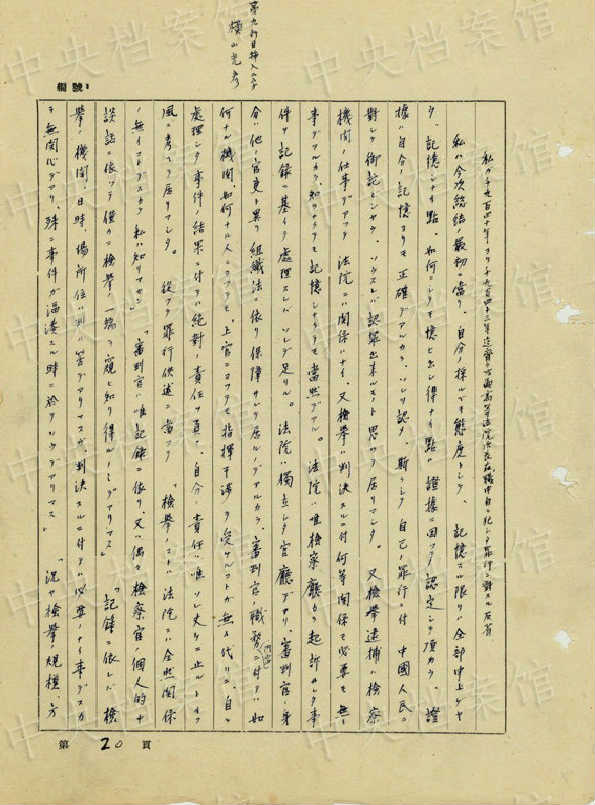 第九行目挿入二文字
横山光彦
編號:
私ガ千九百四十年ヨリ千九百四十三年迄齊々哈爾高等法院次長在職中自ラ犯シタ罪行ニ對スル反省
私ハ今次総結ノ最初ニ當リ、自分ノ採ルベキ態度トシテ、記憶スル限リハ全部申上ゲヤ
ウ、記憶シナイ點、如何ニシテモ憶ヒ出シ得ナイ點ハ證據ニ因ッテ認定シテ頂カウ、證
據ハ自分ノ記憶ヨリモ正確デアルカラ、ソレヲ認メ、斯ウシテ自己ノ罪行ニ付中國人民ニ
對シテ御詫ビシヤウ、ソウスレバ認罪出来ルモノト思ッテ居リマシタ。又檢擧逮捕ハ檢察
機関ノ仕事デアッテ法院ニハ関係ハナイ、又檢擧ハ判決スルニ付何等関係モ必要モ無イ
事デアルカラ、知ラナクテモ記憶シナクテモ當然デアル。法院ハ唯檢察廳カラ起訴サレタ事
件ヲ記録ニ基イテ處理スレバソレデ足リル。法院ハ獨立シタ官廳デアリ、審判官ノ身
分ハ他ノ官吏ト異リ組織法ニ依リ保障サレテ居ルノデアルカラ、審判官ハ職務ノ内容ニ付テハ如
何ナル機関、如何ナル人カラデモ、上官カラデモ指揮干渉ヲ受ケルコトガ無イ代リニ、自ラ
處理シタ事件ノ結果ニ付テハ絶對ノ責任ヲ負フ。自分ノ責任ハ唯ソレ丈ケニ止ルトイフ
風ニ考ヘテ居リマシタ。従ッテ罪行供述ニ當ッテ「檢擧ノコトハ法院ニハ全然関係
ノ無イコトデスカラ私ハ知リマセン」「審判官ハ唯記録ニ依リ、又ハ偶々檢察官ノ個人的ナ
談話ニ依ッテ僅カニ檢擧ノ一端ヲ窺ヒ知リ得ルノミデアリマス」「記録ニ依レバ檢
擧ノ機関、日時、場所位ハ判ル筈デアリマスガ、判決スルニ付テハ必要ノナイ事デスカ
ラ無関心デアリ、殊ニ事件ガ輻湊スル時ニ於テソウデアリマス」「況ヤ檢擧ノ規模、方
第 20 頁
中央档案馆